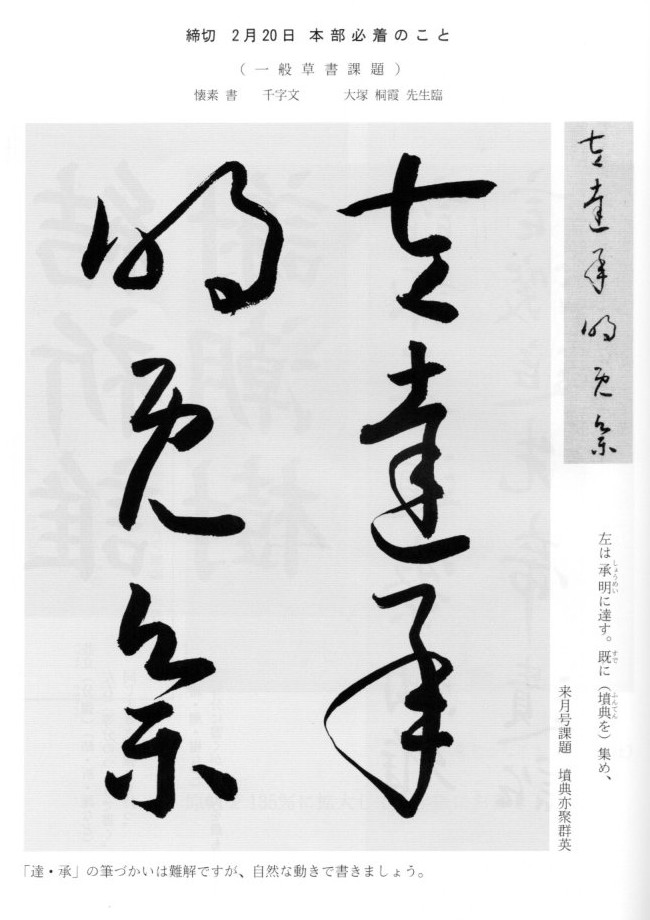 締切 2月20日 本部必着のこと
(一般草書課題)
懐素 書 千字文 大塚 桐霞 先生臨
左達承
明既集
左達承明既集
左は承明に達す。既に(墳典を)集め、
しょうめい
すで
ふんでん
来月号課題 墳典亦聚群英
「達・承」の筆づかいは難解ですが、自然な動きで書きましょう。